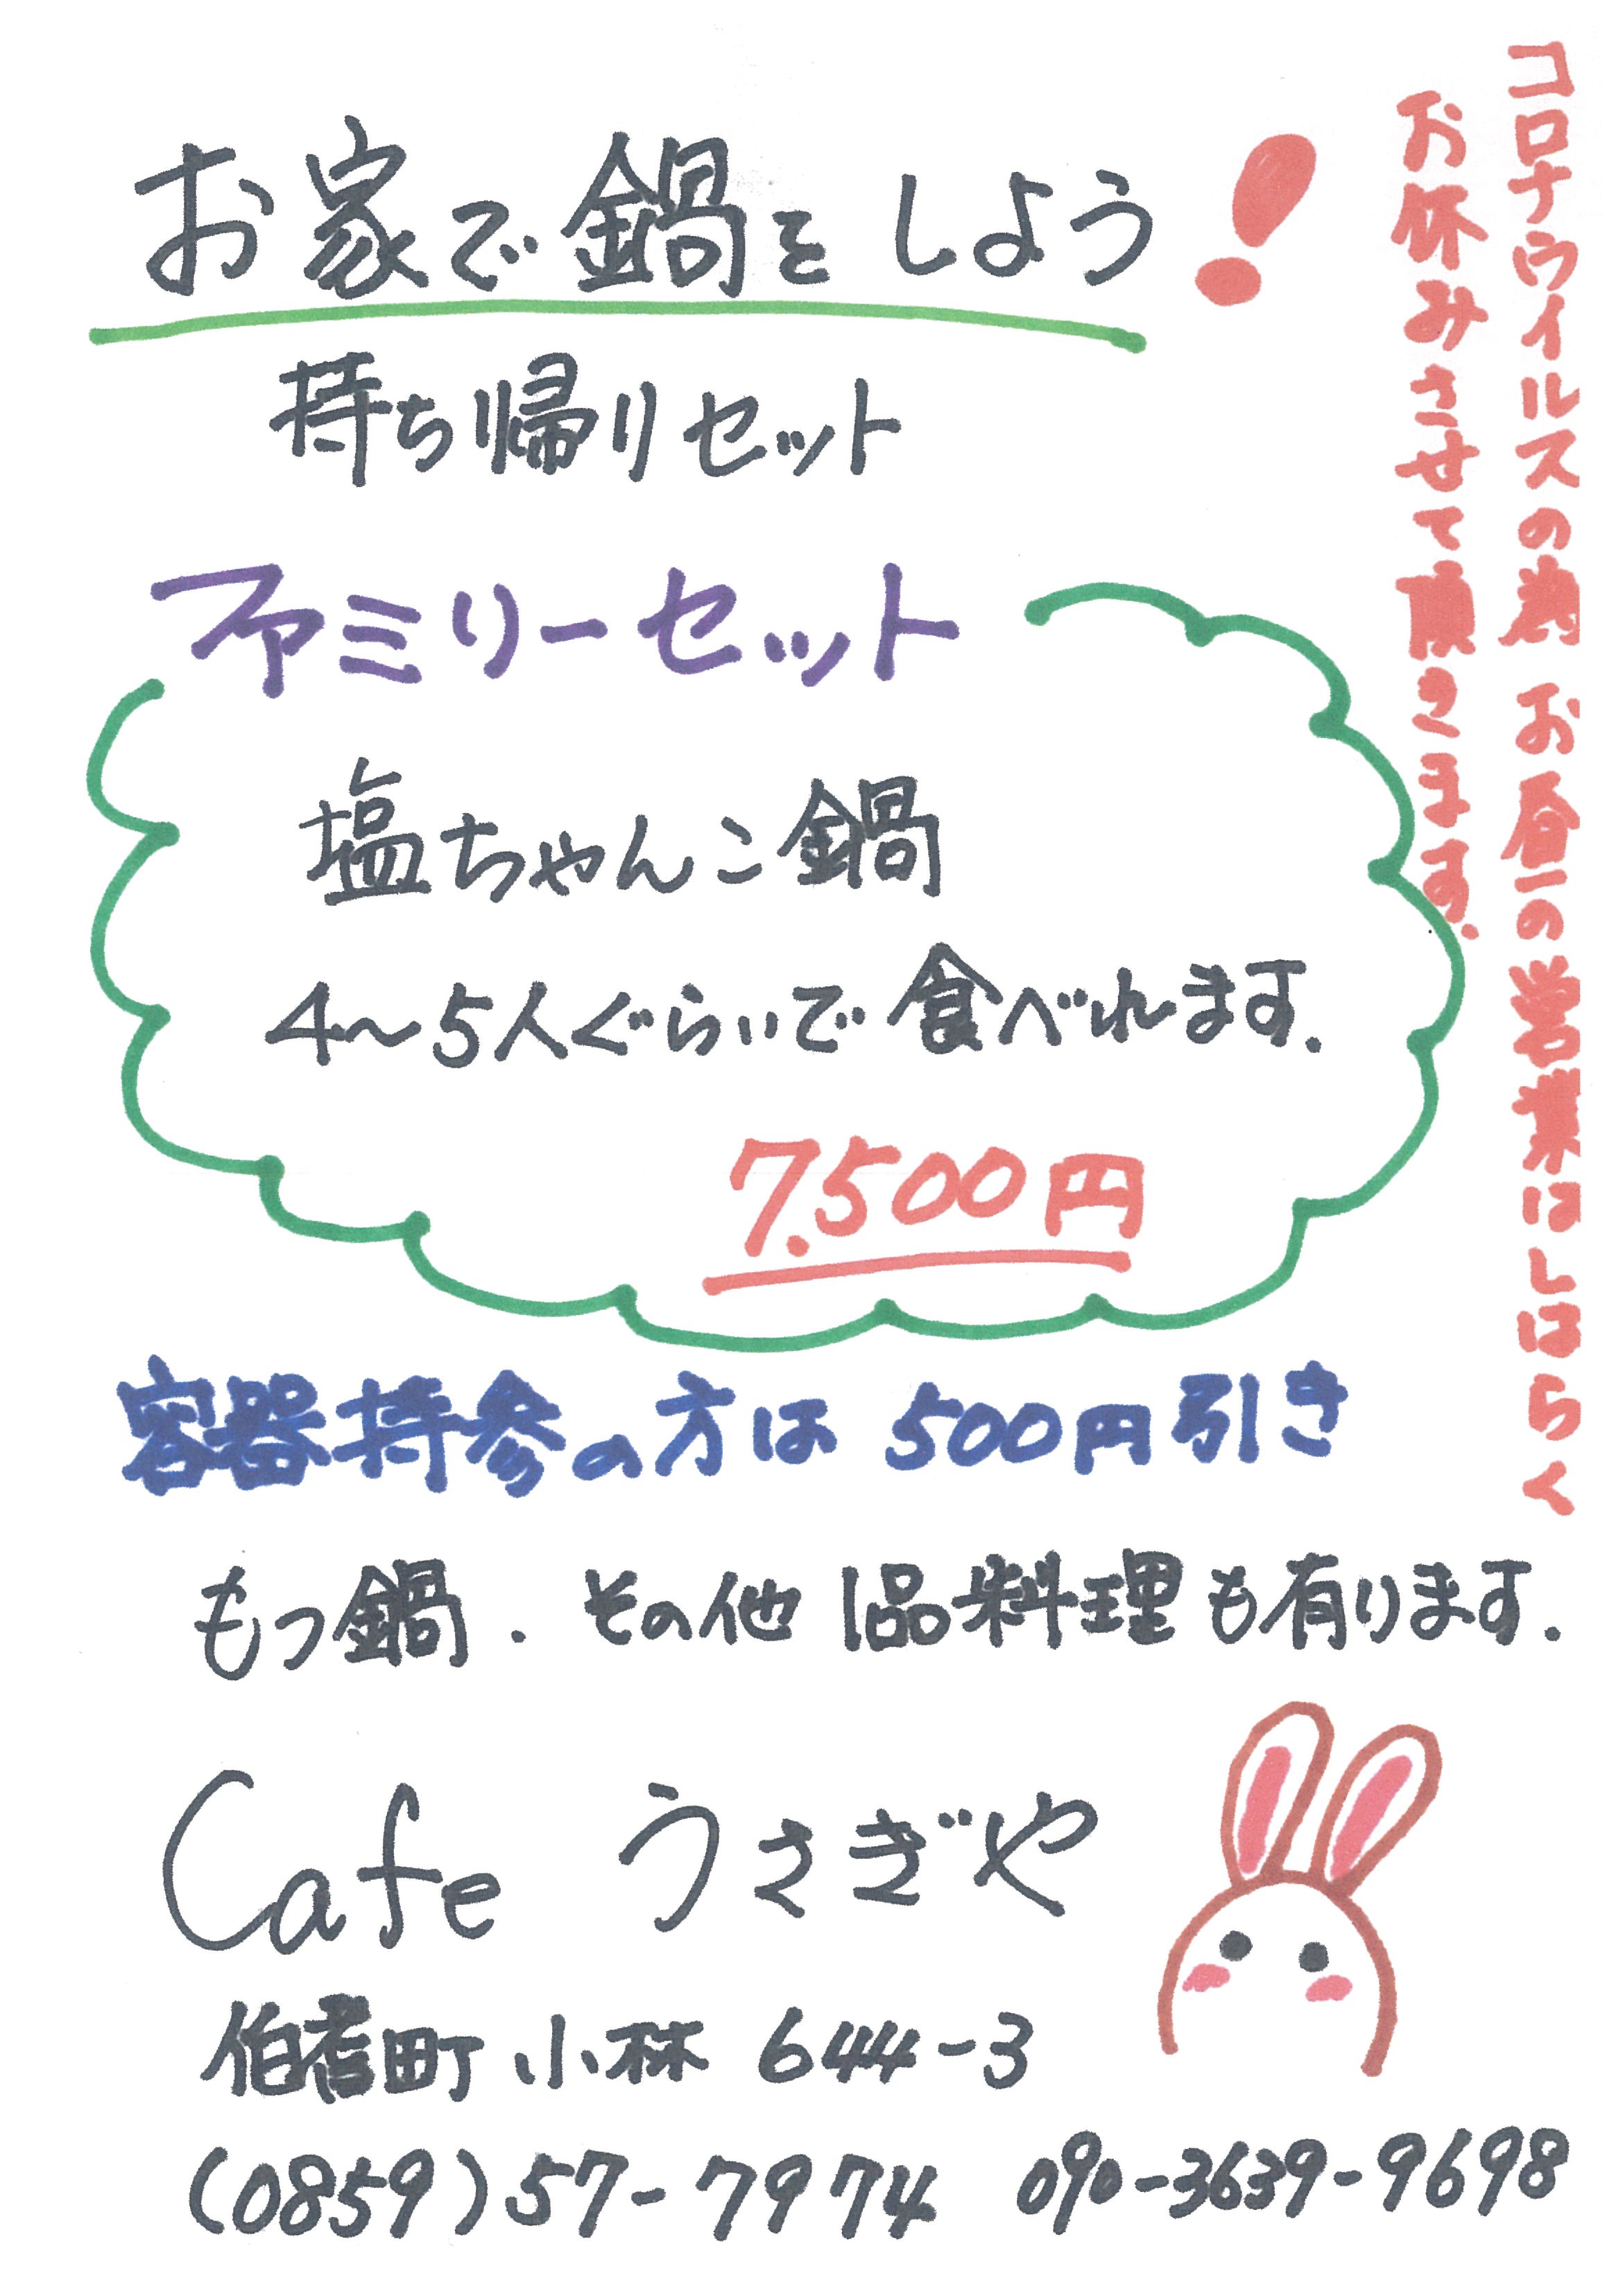 コロナウイルスの為 お昼の営業はしばらく
お休みさせて頂きます.
お家で鍋をしよう!
持ち帰りセット
ファミリーセット
塩ちゃんこ鍋
4～5人ぐらいで食べれます.
7.500円
容器持参の方は 500円引き
もつ鍋. その他 1品料理も有ります.
Cafe うさぎや
伯耆町 小林 644-3
(0859)57-7974 090-3639-9698